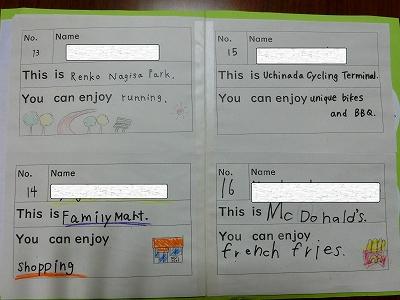 No. Name
13
This is Renko Nagisa Park.
You can enjoy running.
No. Name
14
This is FamilyMart.
You can enjoy
shopping
No. Name
15
This is Uchinada Cycling Terminal.
You can enjoy unique bikes
and BBQ.
No. Name
16
This is McDonald's.
You can enjoy
french fries.